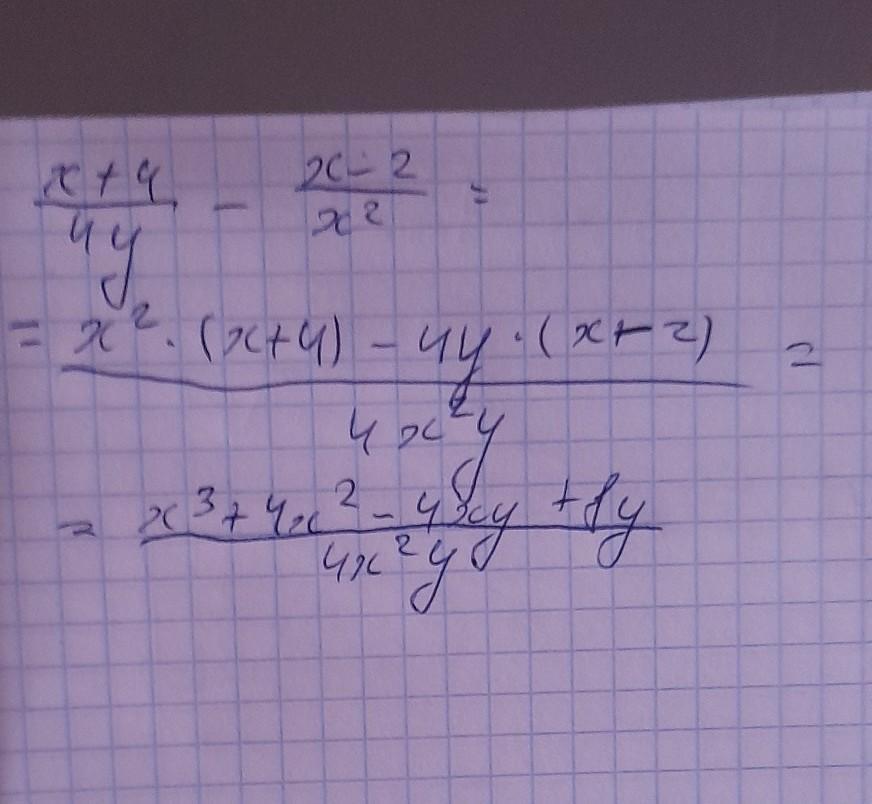 x+4/4y - x-2/x² =
= x²·(x+4) - 4y·(x-2)/4x²y =
= x³+4x²-4xy+8y/4x²y